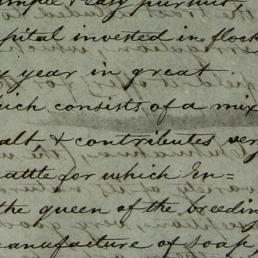 simple & easy pursuit,
pital invested in flock
y year in great
hich consists of a mix
alt & contributes very
attle for which En=
the queen of the breeding
anufacture of soap,